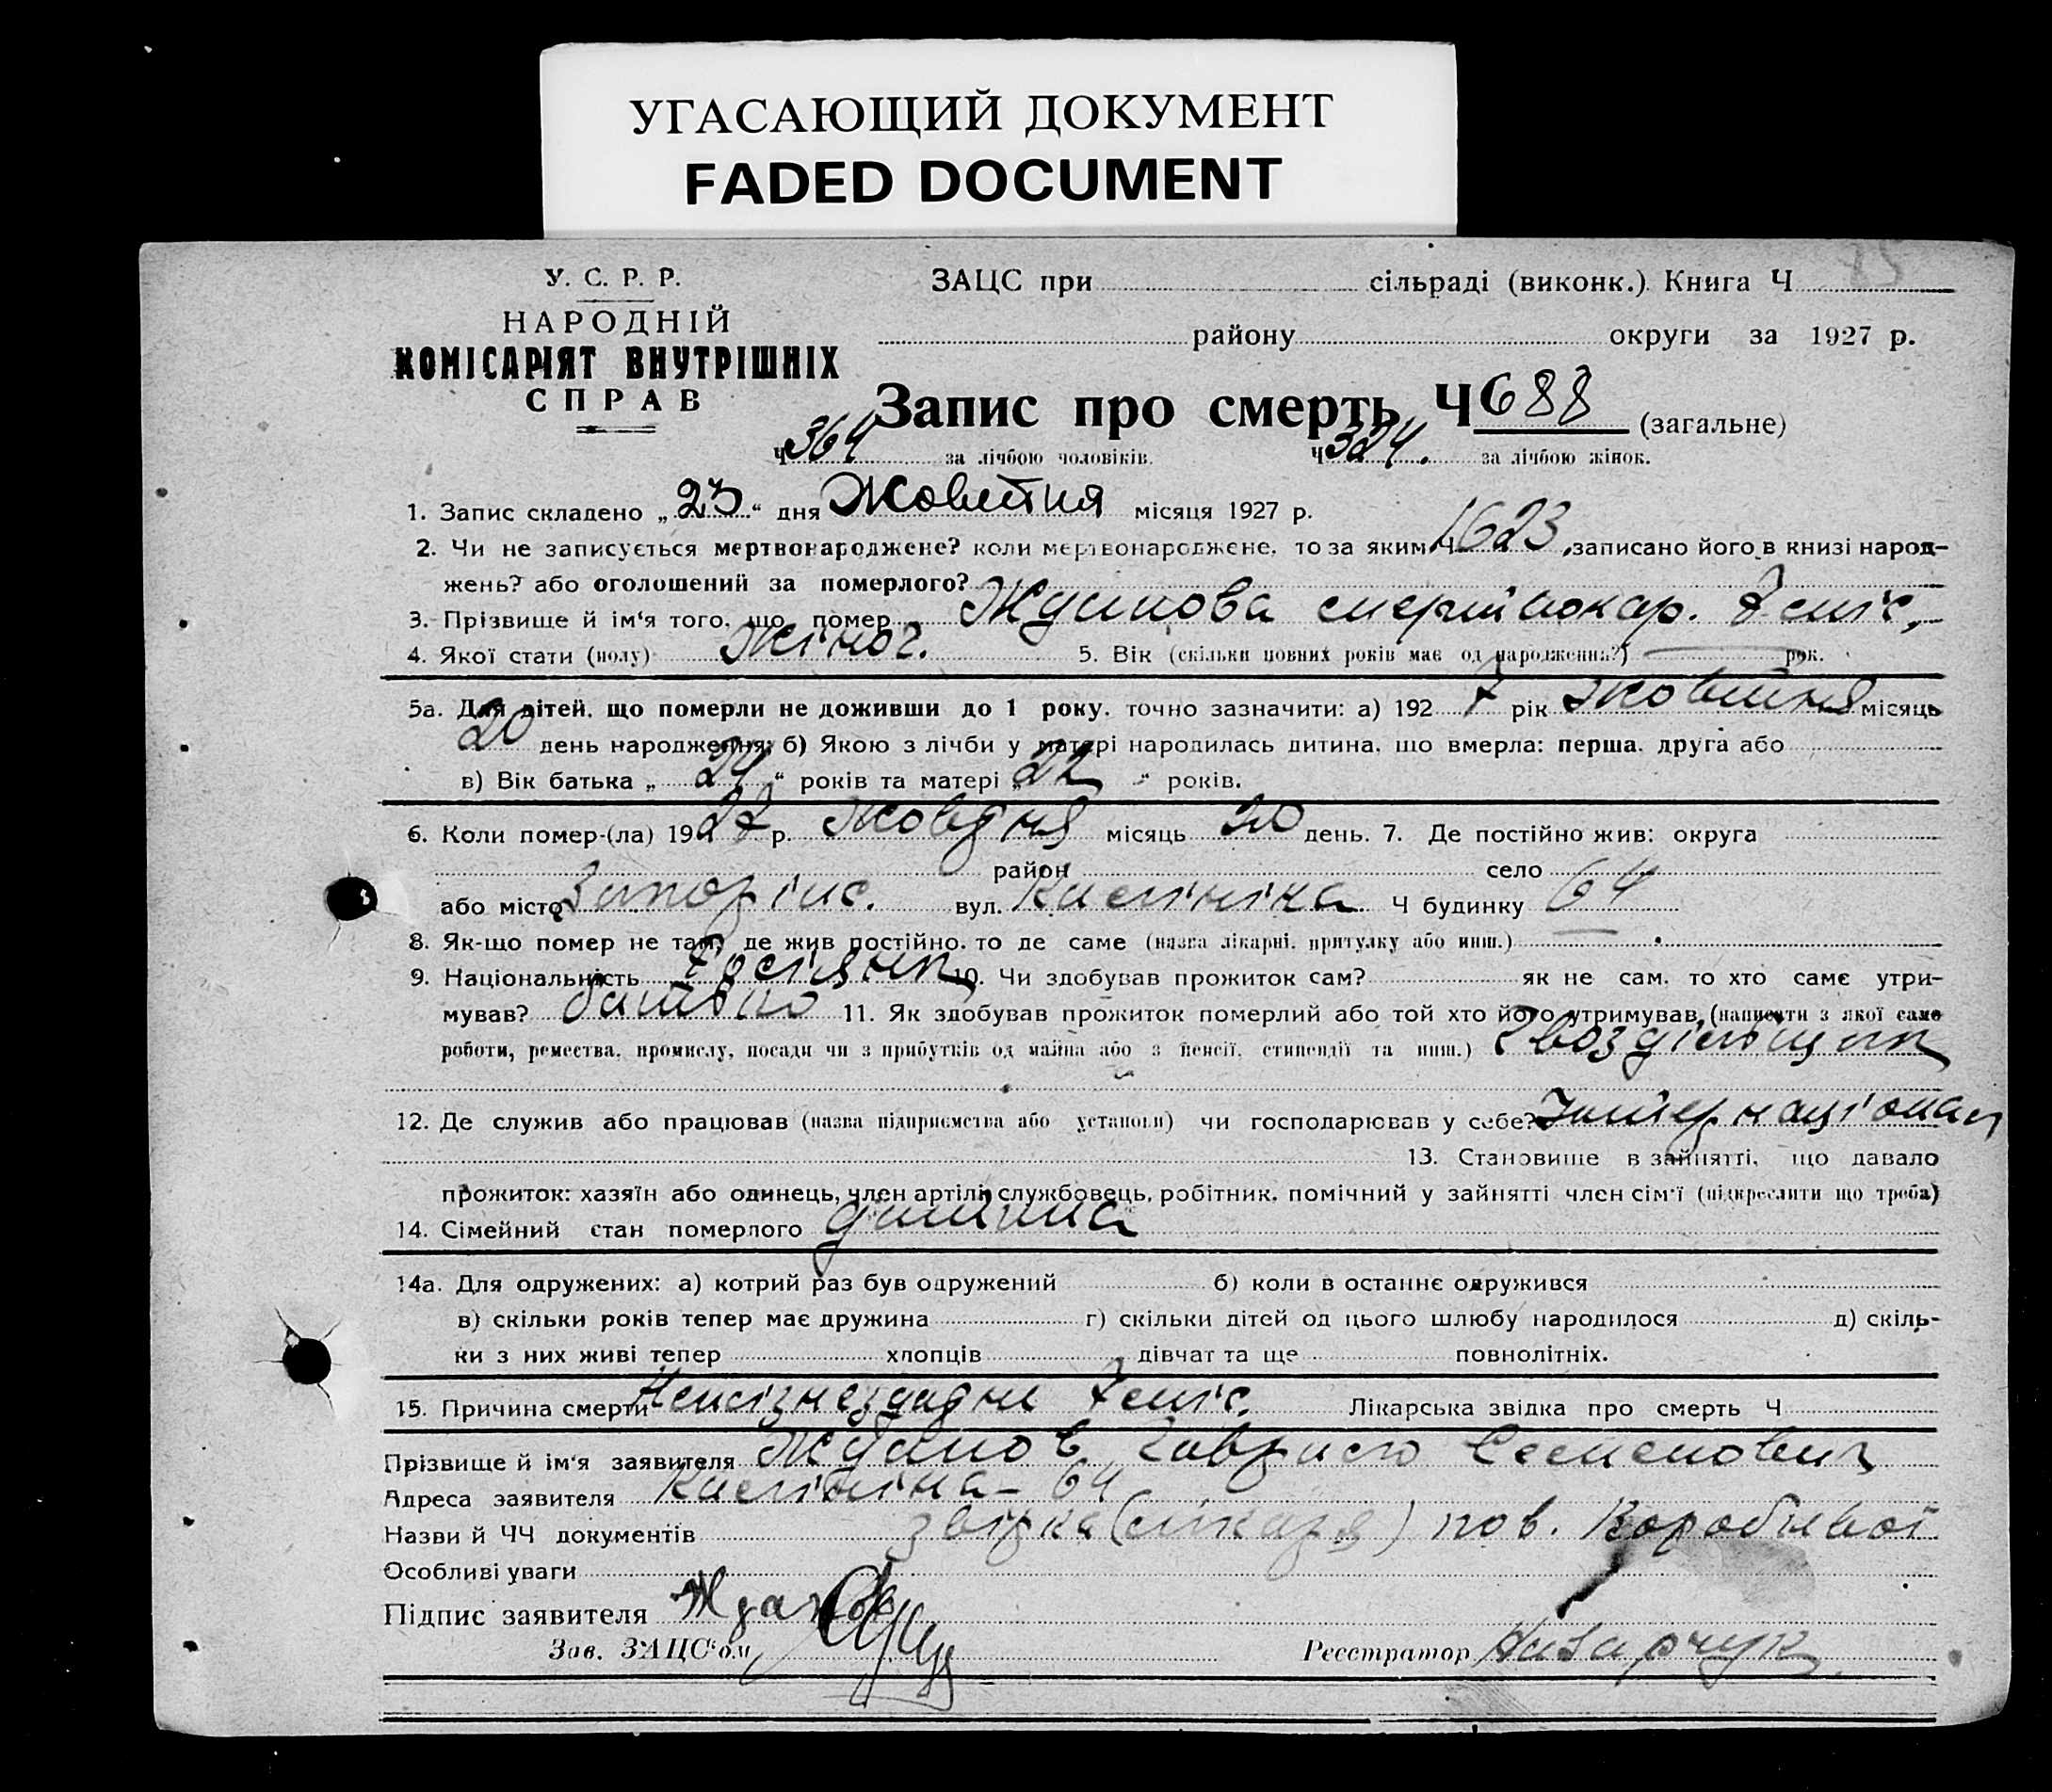 УГАСАЮЩИЙ ДОКУМЕНТ
FADED DOCUMENT
У. С. Р. Р.
НАРОДНІЙ
КОМІСАРІЯТ ВНУТРІШНІХ
СПРАВ
ЗАЦС при сільраді (виконк.) Книга Ч
району округи за 1927 р.
Запис про смерть Ч 688 (загальне)
Ч 364 за лічбою чоловіків. Ч 324. за лічбою жінок.
1. Запис складено „23“ дня Жовтня місяця 1927 р.
2. Чи не записується мертвонароджене? коли мертвонароджене, то за яким Ч 1623, записано його в книзі народ-
жень? або оголошений за померлого?
3. Прізвище й ім'я того, що помер Жданова
4. Якої стати (полу) Жіноч. 5. Вік (скільки повних років має од народження?) рок.
5а. Для дітей, що померли не доживши до 1 року, точно зазначити: а) 192 7 рік Жовтня місяць
20 день народження; б) Якою з лічби у матері народилась дитина, що вмерла: перша, друга або
в) Вік батька „24“ років та матері „22“ років.
6. Коли помер-(ла) 1927 р. Жовдня місяць 20 день. 7. Де постійно жив: округа
район село
або місто Запоріж. вул. Ч будинку 64
8. Як-що помер не там, де жив постійно, то де саме (назва лікарні, притулку або инш.)
9. Національність Росіянин 10. Чи здобував прожиток сам? як не сам, то хто саме утри-
мував? батько 11. Як здобував прожиток померлий або той хто його утримував, (написати з якої саме
роботи, ремества, промислу, посади чи з прибутків од майна або з пенсії, стипендії та инш.)
12. Де служив або працював (назва підприємства або установи) чи господарював у себе? Интернаціонал
13. Становище в зайнятті, що давало
прожиток: хазяїн або одинець, член артілі, службовець, робітник, помічний у зайнятті член сім'ї (підкреслити що треба)
14. Сімейний стан померлого дитина
14а. Для одружених: а) котрий раз був одружений б) коли в останнє одружився
в) скільки років тепер має дружина г) скільки дітей од цього шлюбу народилося д) скіль-
ки з них живі тепер хлопців дівчат та ще повнолітніх.
15. Причина смерти Лікарська звідка про смерть Ч
Прізвище й ім'я заявителя Жданов Гаврило Семенович
Адреса заявителя 64
Назви й ЧЧ документів пов.
Особливі уваги
Підпис заявителя Жданов
Зав. ЗАЦС'ом Реєстратор Назарчук